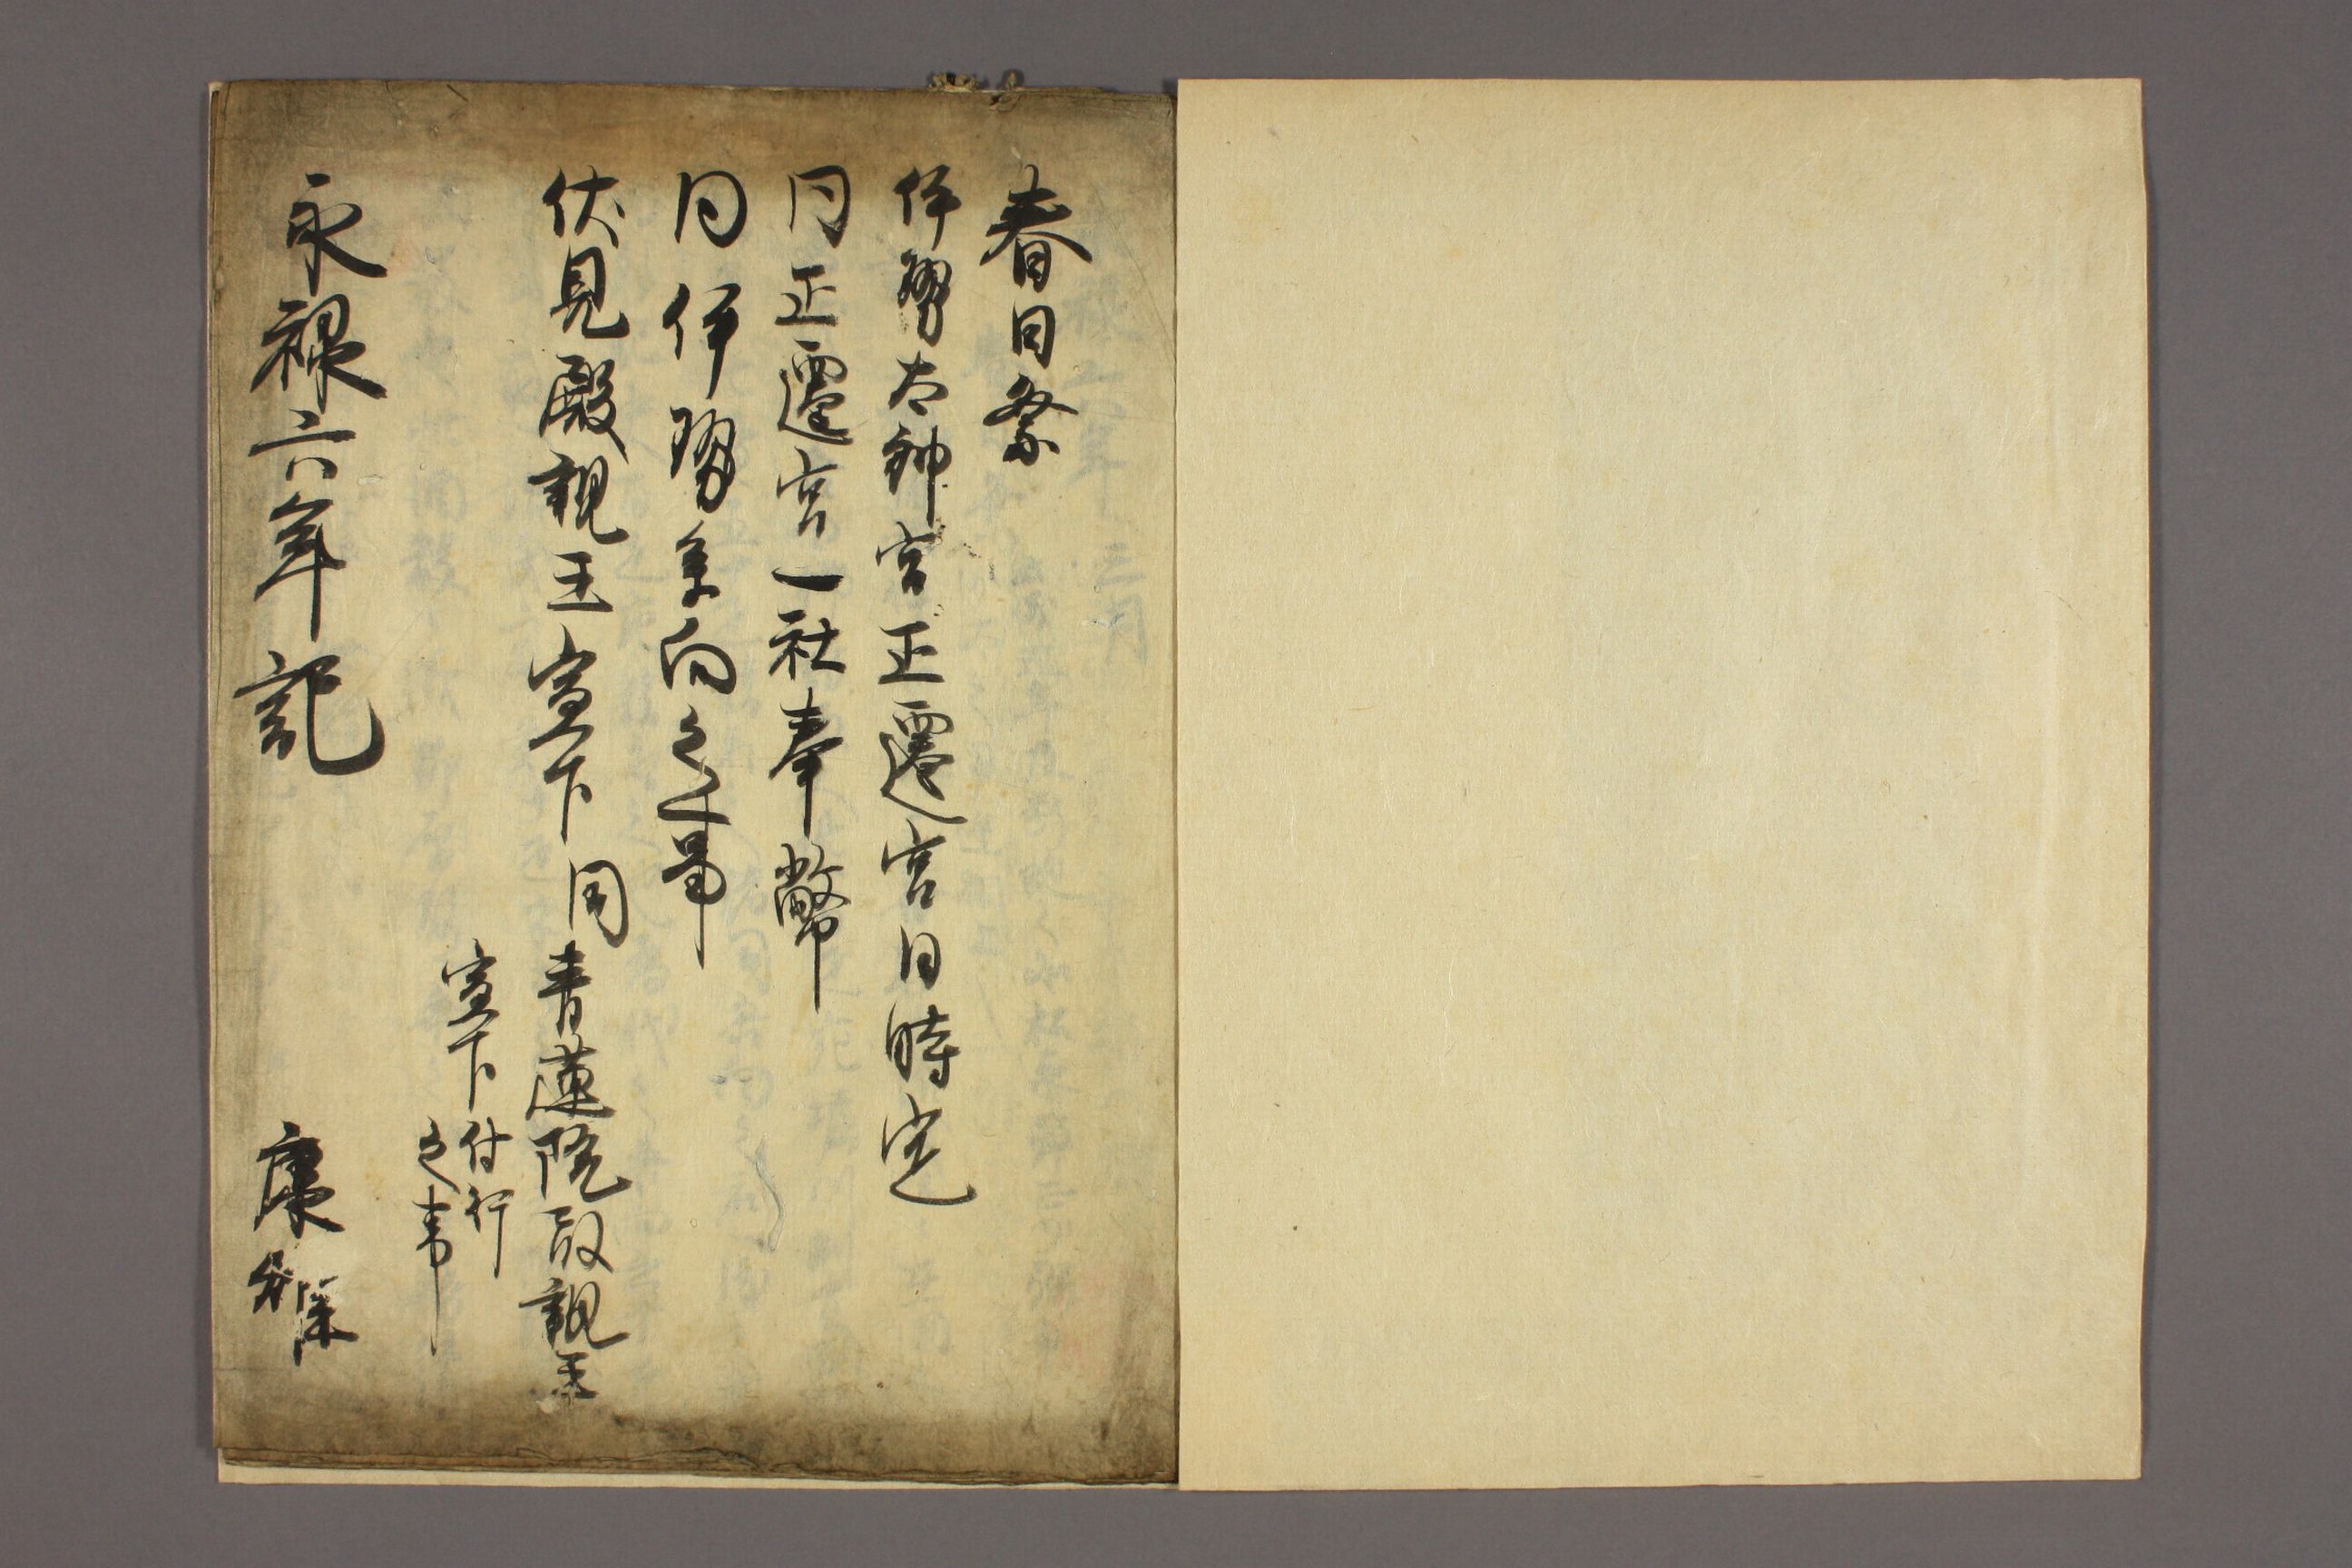 春日祭
伊勢太神宮正遷宮日時定
同正遷宮一社奉幣
同伊勢参向之事
伏見殿親王宣下同青蓮院殿親王
宣下付行
之事
永禄六年記
康雄